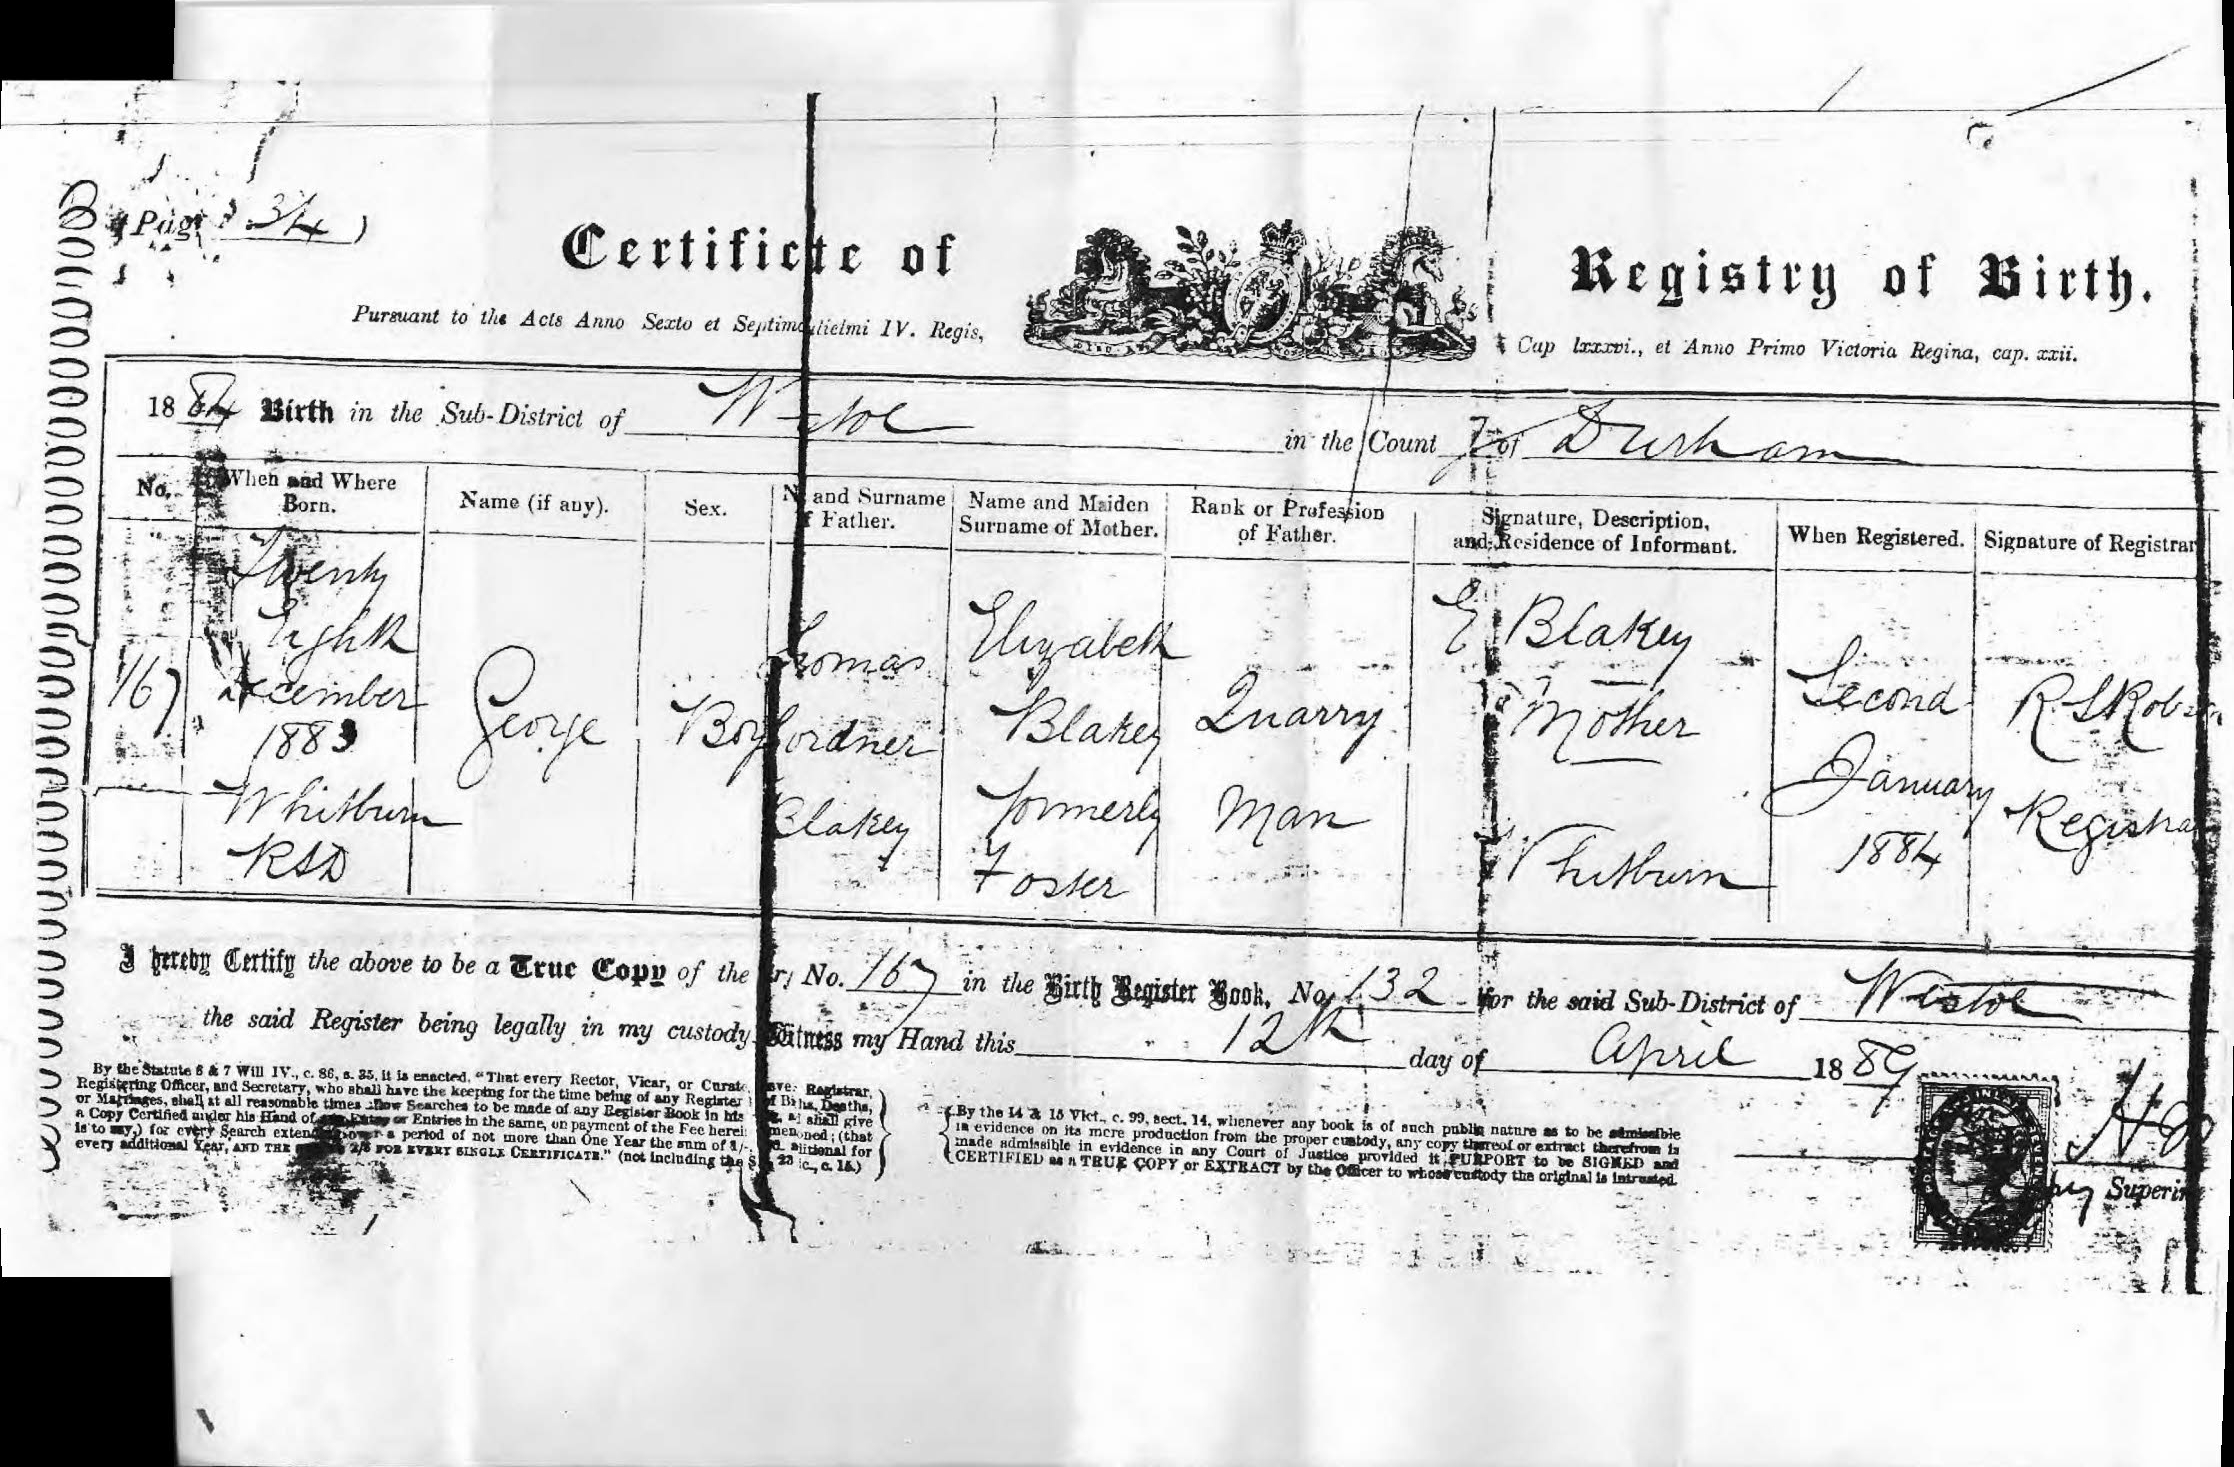 (Page 34)
Certificate of Registry of Birth.
Pursuant to the Acts Anno Sexto et Septimo ulielmi IV. Regis, Cap lxxxvi., et Anno Primo Victoria Regina, cap. xxii.
1884 Birth in the Sub-District of Westoe in the County of Durham
No.
When and Where
Born.
Name (if any).
Sex.
N and Surname
f Father.
Name and Maiden
Surname of Mother.
Rank or Profession
of Father.
Signature, Description,
and Residence of Informant.
When Registered.
Signature of Registrar
167
Twenty
Eighth
December
1883
Whitburn
RSD
George
Boy
Thomas
Gordner
Blakey
Elizabeth
Blakey
formerly
Foster
Quarry
Man
E Blakey
Mother
Whitburn
Second
January
1884
R S Robson
Registrar
I hereby Certify the above to be a True Copy of the ry No. 167 in the Birth Register Book, No. 132 for the said Sub-District of Westoe
the said Register being legally in my custody Witness my Hand this 12th day of April 1889
By the Statute 6 & 7 Will IV., c. 86, s. 35, it is enacted, "That every Rector, Vicar, or Curate, ver: Registrar,
Registering Officer, and Secretary, who shall have the keeping for the time being of any Register of Bihs, Deaths,
or Marriages, shall at all reasonable times allow Searches to be made of any Register Book in his shall give
a Copy Certified under his Hand of any Entry or Entries in the same, on payment of the Fee herei menoned; (that
is to say,) for every Search extending over a period of not more than One Year the sum of 1/- ditional for
every additional Year, AND THE 2/6 FOR EVERY SINGLE CERTIFICATE." (not including the S 23 ic., c. 15.)
By the 14 & 15 Vict., c. 99, sect. 14, whenever any book is of such public nature as to be admissible
in evidence on its mere production from the proper custody, any copy thereof or extract therefrom is
made admissible in evidence in any Court of Justice provided it PURPORT to be SIGNED and
CERTIFIED as a TRUE COPY or EXTRACT by the Officer to whose custody the original is intrusted.
Superin